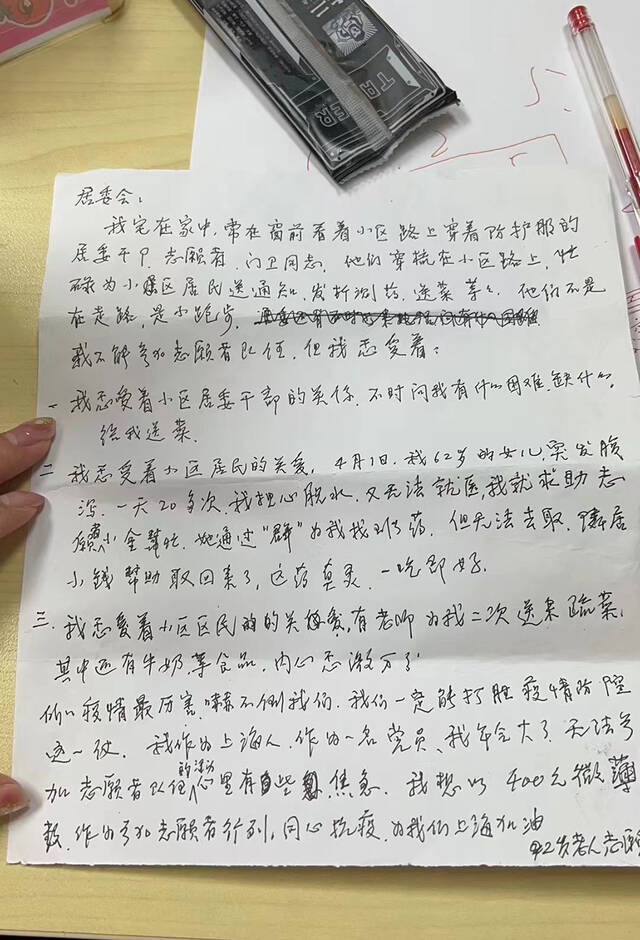 TA
ER
2
5
居委会:
我宅在家中,常在窗前看着小区路上穿着防护服的
居委干部、志愿者、门卫同志,他们穿梭在小区路上,忙
碌为小区居民送通知、发抗测药、送菜等等。他们不是
在走路,是小跑步,
我不能参加志愿者队伍,但我感受着:
一 我感受着小区居委干部的关怀,不时问我有什么困难,缺什么,
给我送菜.
二 我感受着小区居民的关爱,4月1日,我62岁的女儿,突发腹
泻,一天20多次,我担心脱水,又无法就医,我就求助志
愿小金帮忙,她通过“群”为我找到药,但无法去取,隣居
小钱帮助取回来了,这药真灵,一吃即好.
三、我感受着小区区民的关爱,有老师为我二次送来疏菜,
其中还有牛奶等食品,内心感激万分
所以疫情最厉害,嚇不倒我们,我们一定能打胜疫情防控
这一仗,我作为上海人,作为一名党员,我年纪大了,无法参
加志愿者队伍的活动心里有些焦急,我想以400元微薄
报,作为参加志愿者行列,同心抗疫,为我们上海加油
92岁老人志愿